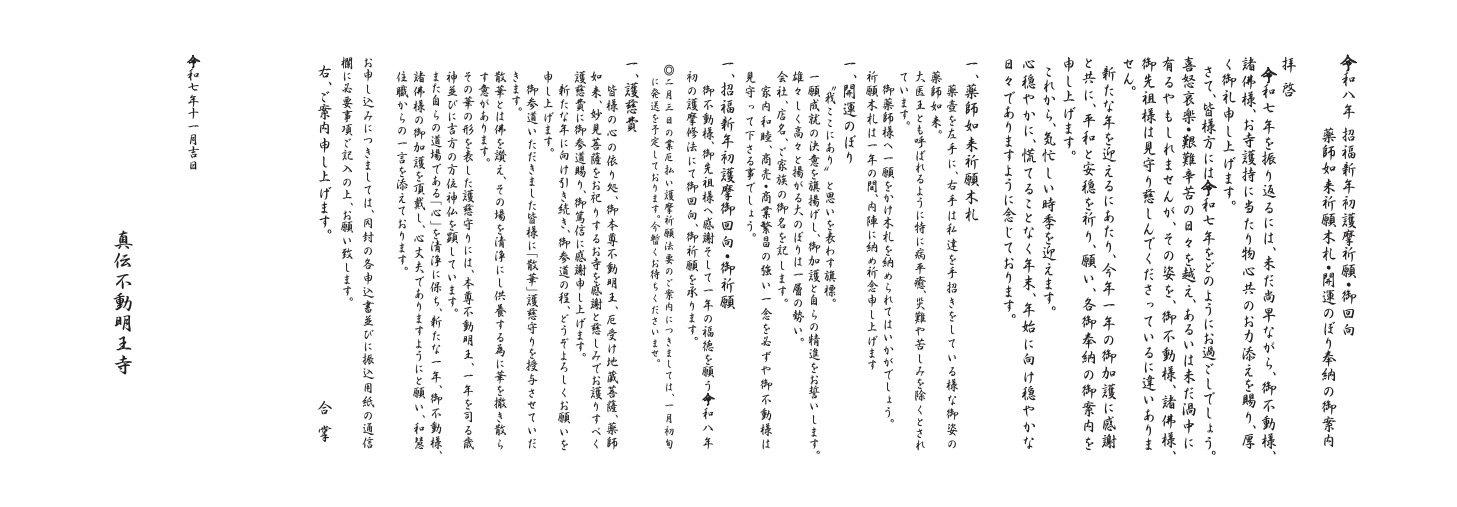 令和八年　招福新年初護摩祈願・御回向
薬師如来祈願木札・開運のぼり奉納の御案内
拝啓
令和七年を振り返るには、未だ尚早ながら、御不動様、
諸佛様、お寺護持に当たり物心共のお力添えを賜り、厚
く御礼申し上げます。
さて、皆様方には令和七年をどのようにお過ごしでしょう。
喜怒哀楽・艱難辛苦の日々を越え、あるいは未だ渦中に
有るやもしれませんが、その姿を、御不動様、諸佛様、
御先祖様は見守り慈しんでくださっているに違いありま
せん。
新たな年を迎えるにあたり、今年一年の御加護に感謝
と共に、平和と安穏を祈り、願い、各御奉納の御案内を
申し上げます。
これから、気忙しい時季を迎えます。
心穏やかに、慌てることなく年末、年始に向け穏やかな
日々でありますように念じております。
一、薬師如来祈願木札
薬壺を左手に、右手は私達を手招きをしている様な御姿の
薬師如来。
大医王とも呼ばれるように特に病平癒、災難や苦しみを除くとされ
ています。
御薬師様へ一願をかけ木札を納められてはいかがでしょう。
祈願木札は一年の間、内陣に納め祈念申し上げます
一、開運のぼり
〝我ここにあり〟と思いを表わす旗標。
一願成就の決意を旗揚げし、御加護と自らの精進をお誓いします。
雄々しく高々と揚がる大のぼりは一層の勢い。
会社、店名、ご家族の御名を記します。
家内和睦、商売・商業繁昌の強い一念を必ずや御不動様は
見守って下さる事でしょう。
一、招福新年初護摩御回向・御祈願
御不動様、御先祖様へ感謝そして一年の福徳を願う令和八年
初の護摩修法にて御回向、御祈願を承ります。
◎二月三日の業厄払い護摩祈願法要のご案内につきましては、一月初旬
に発送を予定しております。今暫くお待ちくださいませ。
一、護慈費
皆様の心の依り処、御本尊不動明王、厄受け地蔵菩薩、薬師
如来、妙見菩薩をお祀りするお寺を感謝と慈しみでお護りすべく
護慈費に御参道賜り、御篤信に感謝申し上げます。
新たな年に向け引き続き、御参道の程、どうぞよろしくお願いを
申し上げます。
御参道いただきました皆様に「散華」護慈守りを授与させていだ
きます。
散華とは佛を讃え、その場を清浄にし供養する為に華を撒き散ら
す意があります。
その華の形を表した護慈守りには、本尊不動明王、一年を司る歳
神並びに吉方の方位神仏を顕しています。
また自らの道場である「心」を清浄に保ち、新たな一年、御不動様、
諸佛様の御加護を頂戴し、心丈夫でありますようにと願い、和琶
住職からの一言を添えております。
お申し込みにつきましては、同封の各申込書並びに振込用紙の通信
欄に必要事項ご記入の上、お願い致します。
右、ご案内申し上げます。
合掌
令和七年十一月吉日
真伝不動明王寺